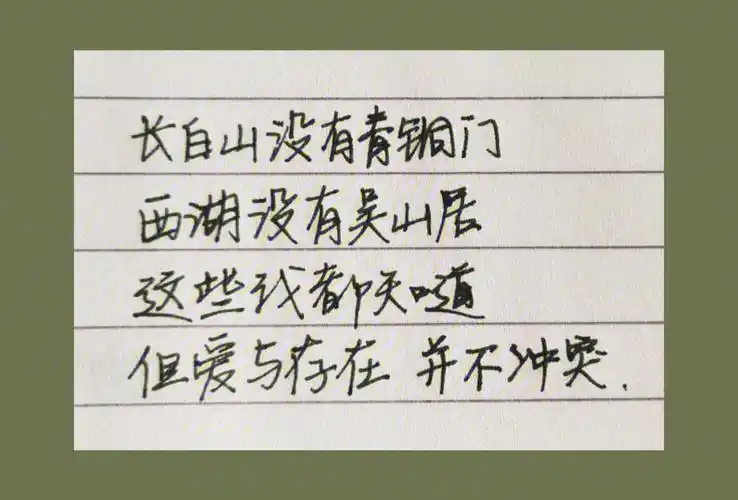 长白山没有青铜门
西湖没有吴山居
这些我都知道
但爱与存在 并不冲突.